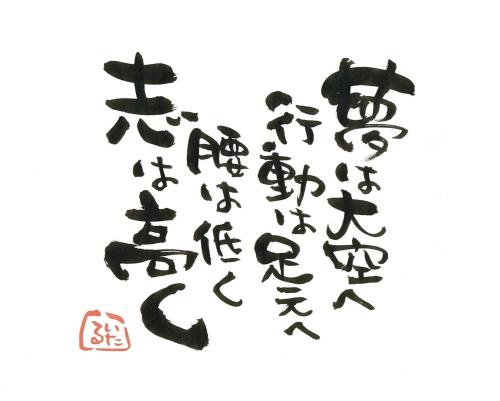 夢は大空へ
行動は足元へ
腰は低く
志は高く
いたる